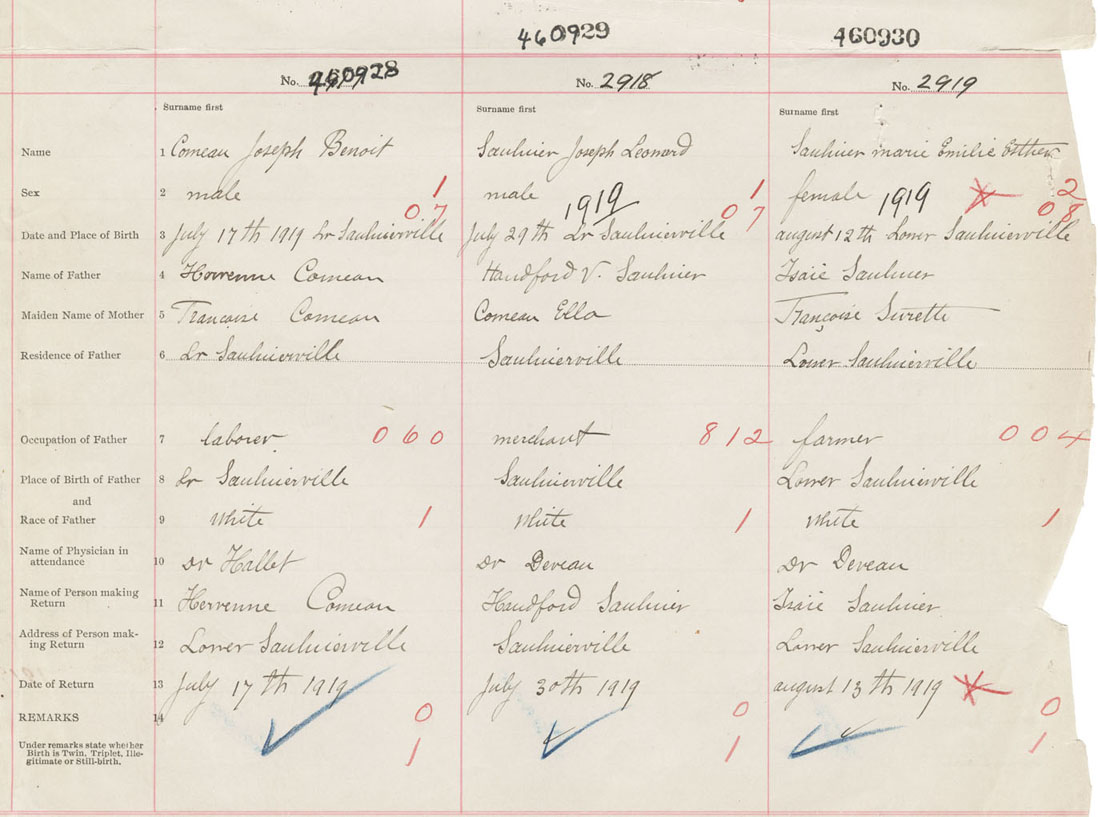 460929 460930
No. 460928 No. 2918 No. 2919
Surname first Surname first Surname first
Name 1 Comeau Joseph Benoit Saulnier Joseph Leonard Saulnier marie Emilie Esther
Sex 2 male 1 male 1919 1 female 1919 2
07 07 08
Date and Place of Birth 3 July 17th 1919 Lr Saulnierville July 29th Lr Saulnierville august 12th Lower Saulnierville
Name of Father 4 Comeau Handford V. Saulnier Isaie Saulnier
Maiden Name of Mother 5 Françoise Comeau Comeau Ella Françoise Surette
Residence of Father 6 Lr Saulnierville Saulnierville Lower Saulnierville
Occupation of Father 7 laborer 060 merchant 812 farmer 004
Place of Birth of Father 8 Lr Saulnierville Saulnierville Lower Saulnierville
and
Race of Father 9 White 1 White 1 White 1
Name of Physician in
attendance 10 Dr Hallet Dr Deveau Dr Deveau
Name of Person making
Return 11 Comeau Handford Saulnier Isaie Saulnier
Address of Person mak-
ing Return 12 Lower Saulnierville Saulnierville Lower Saulnierville
Date of Return 13 July 17th 1919 July 30th 1919 august 13th 1919
REMARKS 14 0 0 0
Under remarks state whether
Birth is Twin, Triplet, Ille-
gitimate or Still-birth. 1 1 1